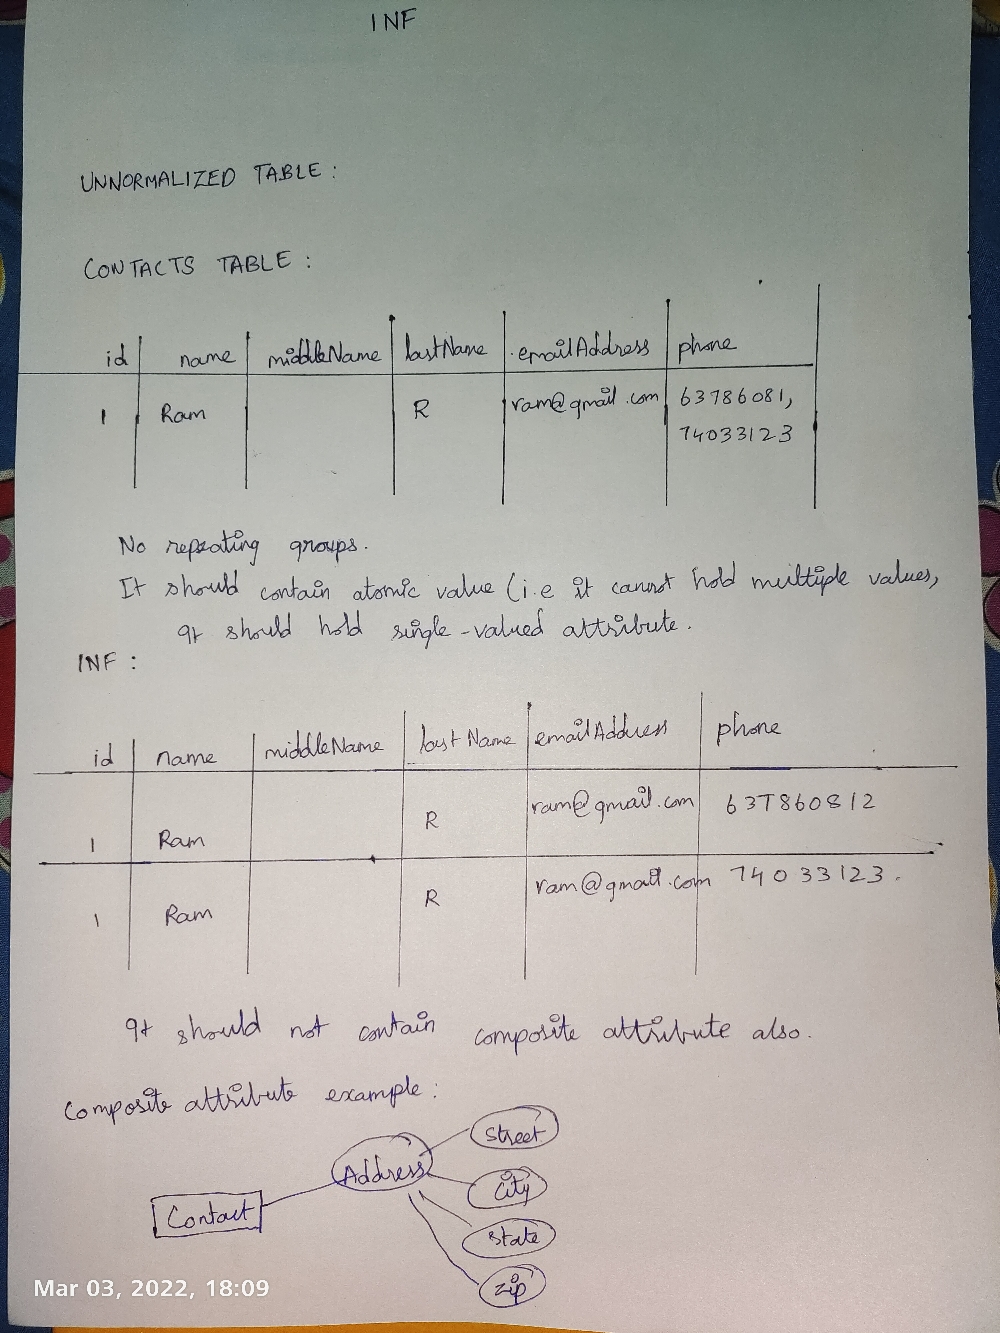 1NF
UNNORMALIZED TABLE :
CONTACTS TABLE :
id name middleName lastName emailAddress phone
1 Ram R ram@gmail.com 63786081,
74033123
No repeating groups.
It should contain atomic value (i.e it cannot hold multiple values,
It should hold single-valued attribute.
1NF :
id name middleName lastName emailAddress phone
1 Ram R ram@gmail.com 637860812
1 Ram R ram@gmail.com 74033123.
It should not contain composite attribute also.
Composite attribute example :
Street
Address
City
Contact
State
Zip
Mar 03, 2022, 18:09